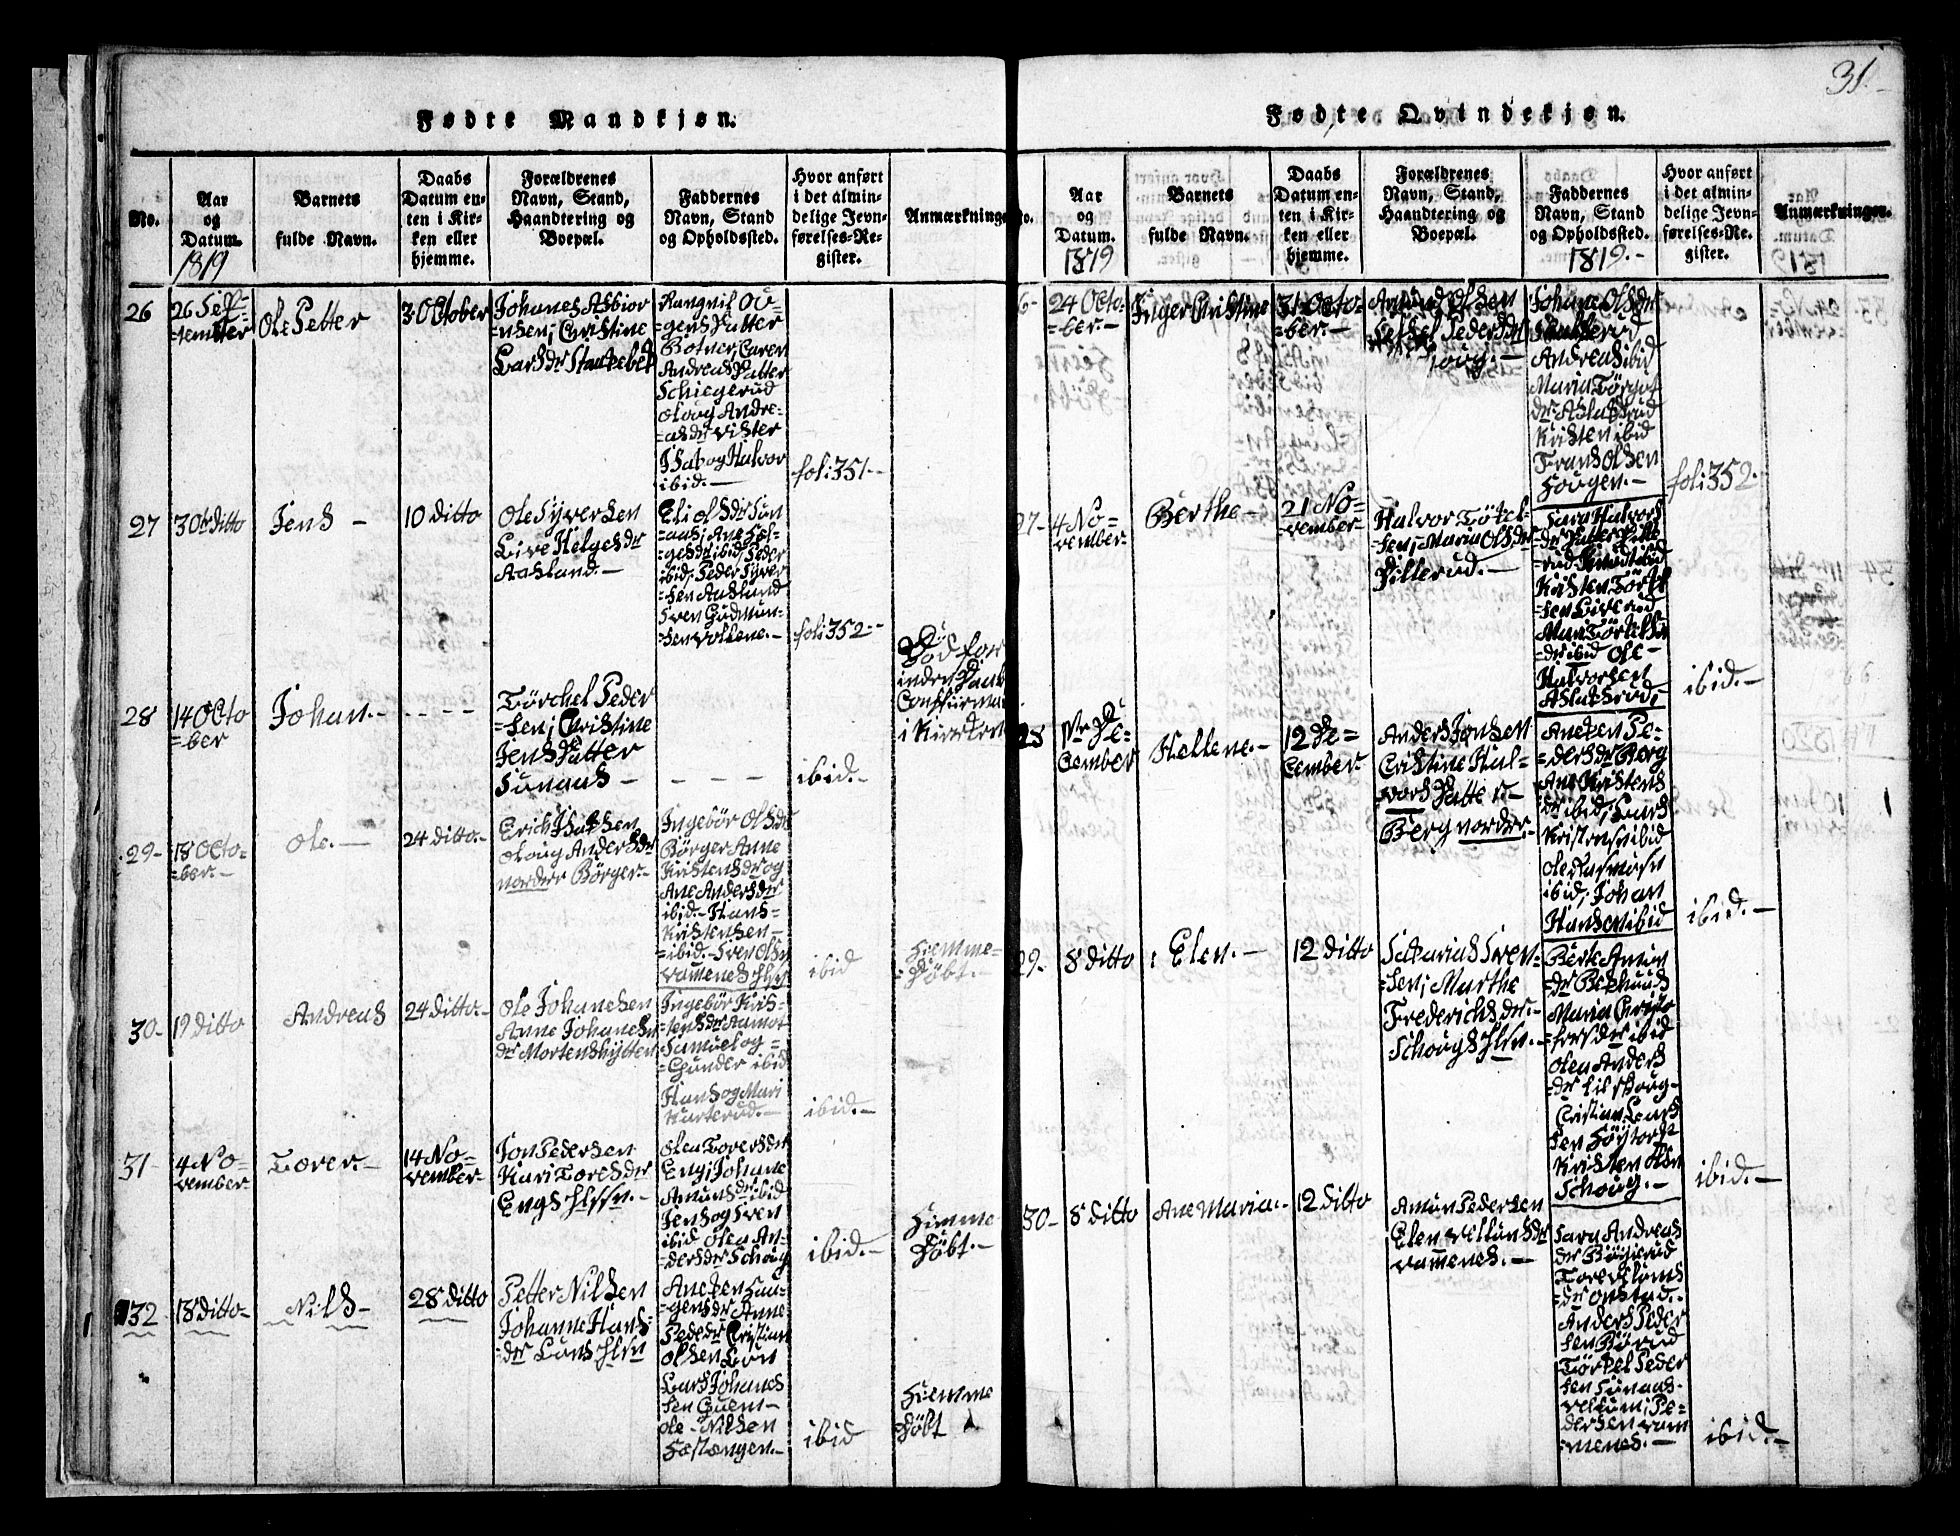 31.-
Fødte Mandkjøn.
No.
Aar
og
Datum.
1819
Barnets
fulde Navn.
Daabs
Datum en-
ten i Kir-
ken eller
hjemme.
Forældrenes
Navn, Stand,
Haandtering og
Boepæl.
Faddernes
Navn, Stand
og Opholdssted.
Hvor anført
i det almin-
delige Jevn-
førelses-Re-
gister.
Anmærkninger
26
26 Sep-
=tember
Ole Petter
3 October
Johanes Asbior
=nsen; Christine
Larsdr Staakebek
Rangnil Ou-
=gens Datter
Botner, Caren
Andreas Datter
Schiegerud
oloug Andre-
=asdr vister
Isak og Halvor
ibid.-
foli 351.-
27
30te ditto
Jens -
10 ditto
Ole Syversen
Live Helgesdr
Aasland.-
Eli olsdr Sun
=aas; Ane Hel-
=gesdr ibid, Peder
ibid. Peder Syver
=sen Aasland
Sven Gudmun-
=sen vollene.-
foli 352.-
28
14 Octo
=ber
Johan.-
- - - -
Törchel Peder
=sen; Christine
Jens Datter
Sunaas -
- - - -
ibid.-
Död for
inden Daab
Confirma
i Kircken
29-
18 Octo-
=ber.-
Ole.-
24 ditto.-
Erich Isaksen
oloug Andersdr
nordre Börger.-
Ingebör olsdr
Börger Anne
Kristensdr og
Ane Andersdr
ibid.- Hans-
Kristensen-
=ibid. Sven olsn
vamenes Hsn
ibid
Hiemme-
=Döbt.-
30-
19 ditto
Andreas
24 ditto.-
Ole Johanesen
Anne Johanes
dr Mortenshytten
Ingebör Kris-
=tensdr Aamot
Samuel og-
=Gunder ibid
Hans og Mari
Karterud.-
ibid.-
31-
4 No-
vember-
Torer.-
14 No-
vember-
Jon Pedersen
Kari Toresdr
Engs Hssn.-
olea Torersdr
Eng; Johane
Amunsdr ibid
Jens og Sven
ibid olea An-
=dersdr Schoug
ibid.-
Himme
Döbt.-
32
18 ditto-
Nils-
28 ditto
Petter Nilsen
Johanne Hans-
=dr Löns Hsn
Aneken Hau-
=gensdr Anne
Pededr Cristian
olsen Lön
Lars Johanes
sen Guem-
ole Nilsen
Hæstængen.-
ibid
Hiemme
Döbt
Fødte Qvindekjøn.
No.
Aar
og
Datum.
1819
Barnets
fulde Navn.
Daabs
Datum en-
ten i Kir-
ken eller
hjemme.
Forældrenes
Navn, Stand,
Haandtering og
Boepæl.
Faddernes
Navn, Stand
og Opholdssted.
1819.-
Hvor anført
i det almin-
delige Jevn-
førelses-Re-
gister.
Anmærkninger.
6-
24 Octo-
=ber.-
Inger Cristine
31 Octo
=ber.-
Amund Olsen
Pedersdr
Johane Olsdr
Andreas ibid
Maria Törgot
dr Aslaksrud
Kristen ibid
Frans Olsen
Hougen.-
foli 352.-
27-
4 No=
vember-
Berthe-
21 No-
=vember-
Halvor Tökel-
=sen; Maria Olsdr
Pillerud.-
Sara Halvors
=dr Datter Pille
=rud Knud ibid
Kristen Törkel
=sen
Mari Törkels
=dr ibid ole-
Halvorsen
Aslaksrud,-
ibid.-
28
1te De-
cember
Hellene.-
12 De=
Cember
Anders Jonsen
Cristine Hal-
vors Datter-
Berg nordre-
Aneken Pe-
=dersdr Berg
Ane Kristens
dr ibid; Lars
Kristensn ibid
ole Rasmusn
ibid; Johan
Hansen ibid
ibid.-
29.
8 ditto
Elen.-
12 ditto
Sakarias Sven-
=sen; Marthe
Frederichsdr.-
Schougs Hsn.-
Berte Amun
=dr Bekhaus
Maria Christo
=fersdr ibid
olea Anders
=dr Lilskoug-
Cristian Lars
sen Höytorp
Kristen olsn
Schoug.-
ibid.-
30-
8 ditto
Ane Maria.-
12 ditto
Amun Pedersen
Elen Villumsdr
vamenes.-
Sara Andreas
dr Bögerud
Anders Peder
sen Börud
Törkel Peder
sen Sunaas-
vellum; Pe-
dersen vam
=menes.-
ibid.-